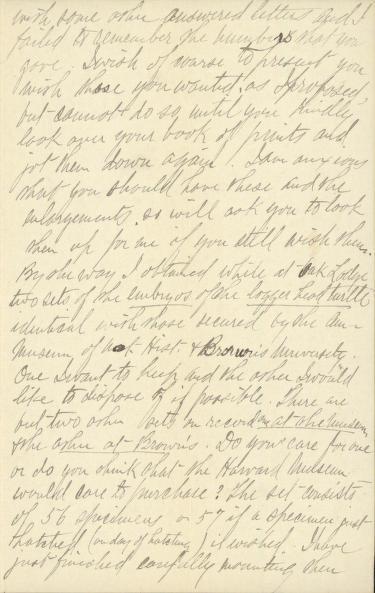 with some other answered letters and I
failed to remember the numbers that you
gave. I wish of course to present you
with those you wanted, as I proposed,
but cannot do so until you kindly
look over your book of prints and
jot them down again. I am anxious
that you should have these and the
enlargements, so will ask you to look
them up for me if you still wish them.
By the way I obtained while at Oak Lodge
two sets of the embryos of the logger head turtle
identical with those secured by the Am-
Museum of Nat Hist. & Brown's University.
One I want to keep and the other I would
like to dispose of if possible. There are
but two other sets on record one at the museum
& the other at Brown's. Do you care for one
or do you think that the Harvard Museum
would care to purchase? The set consists
of 56 specimens, or 57 if a specimen just
hatched (on day of hatching) if wished. I have
just finished carefully mounting them